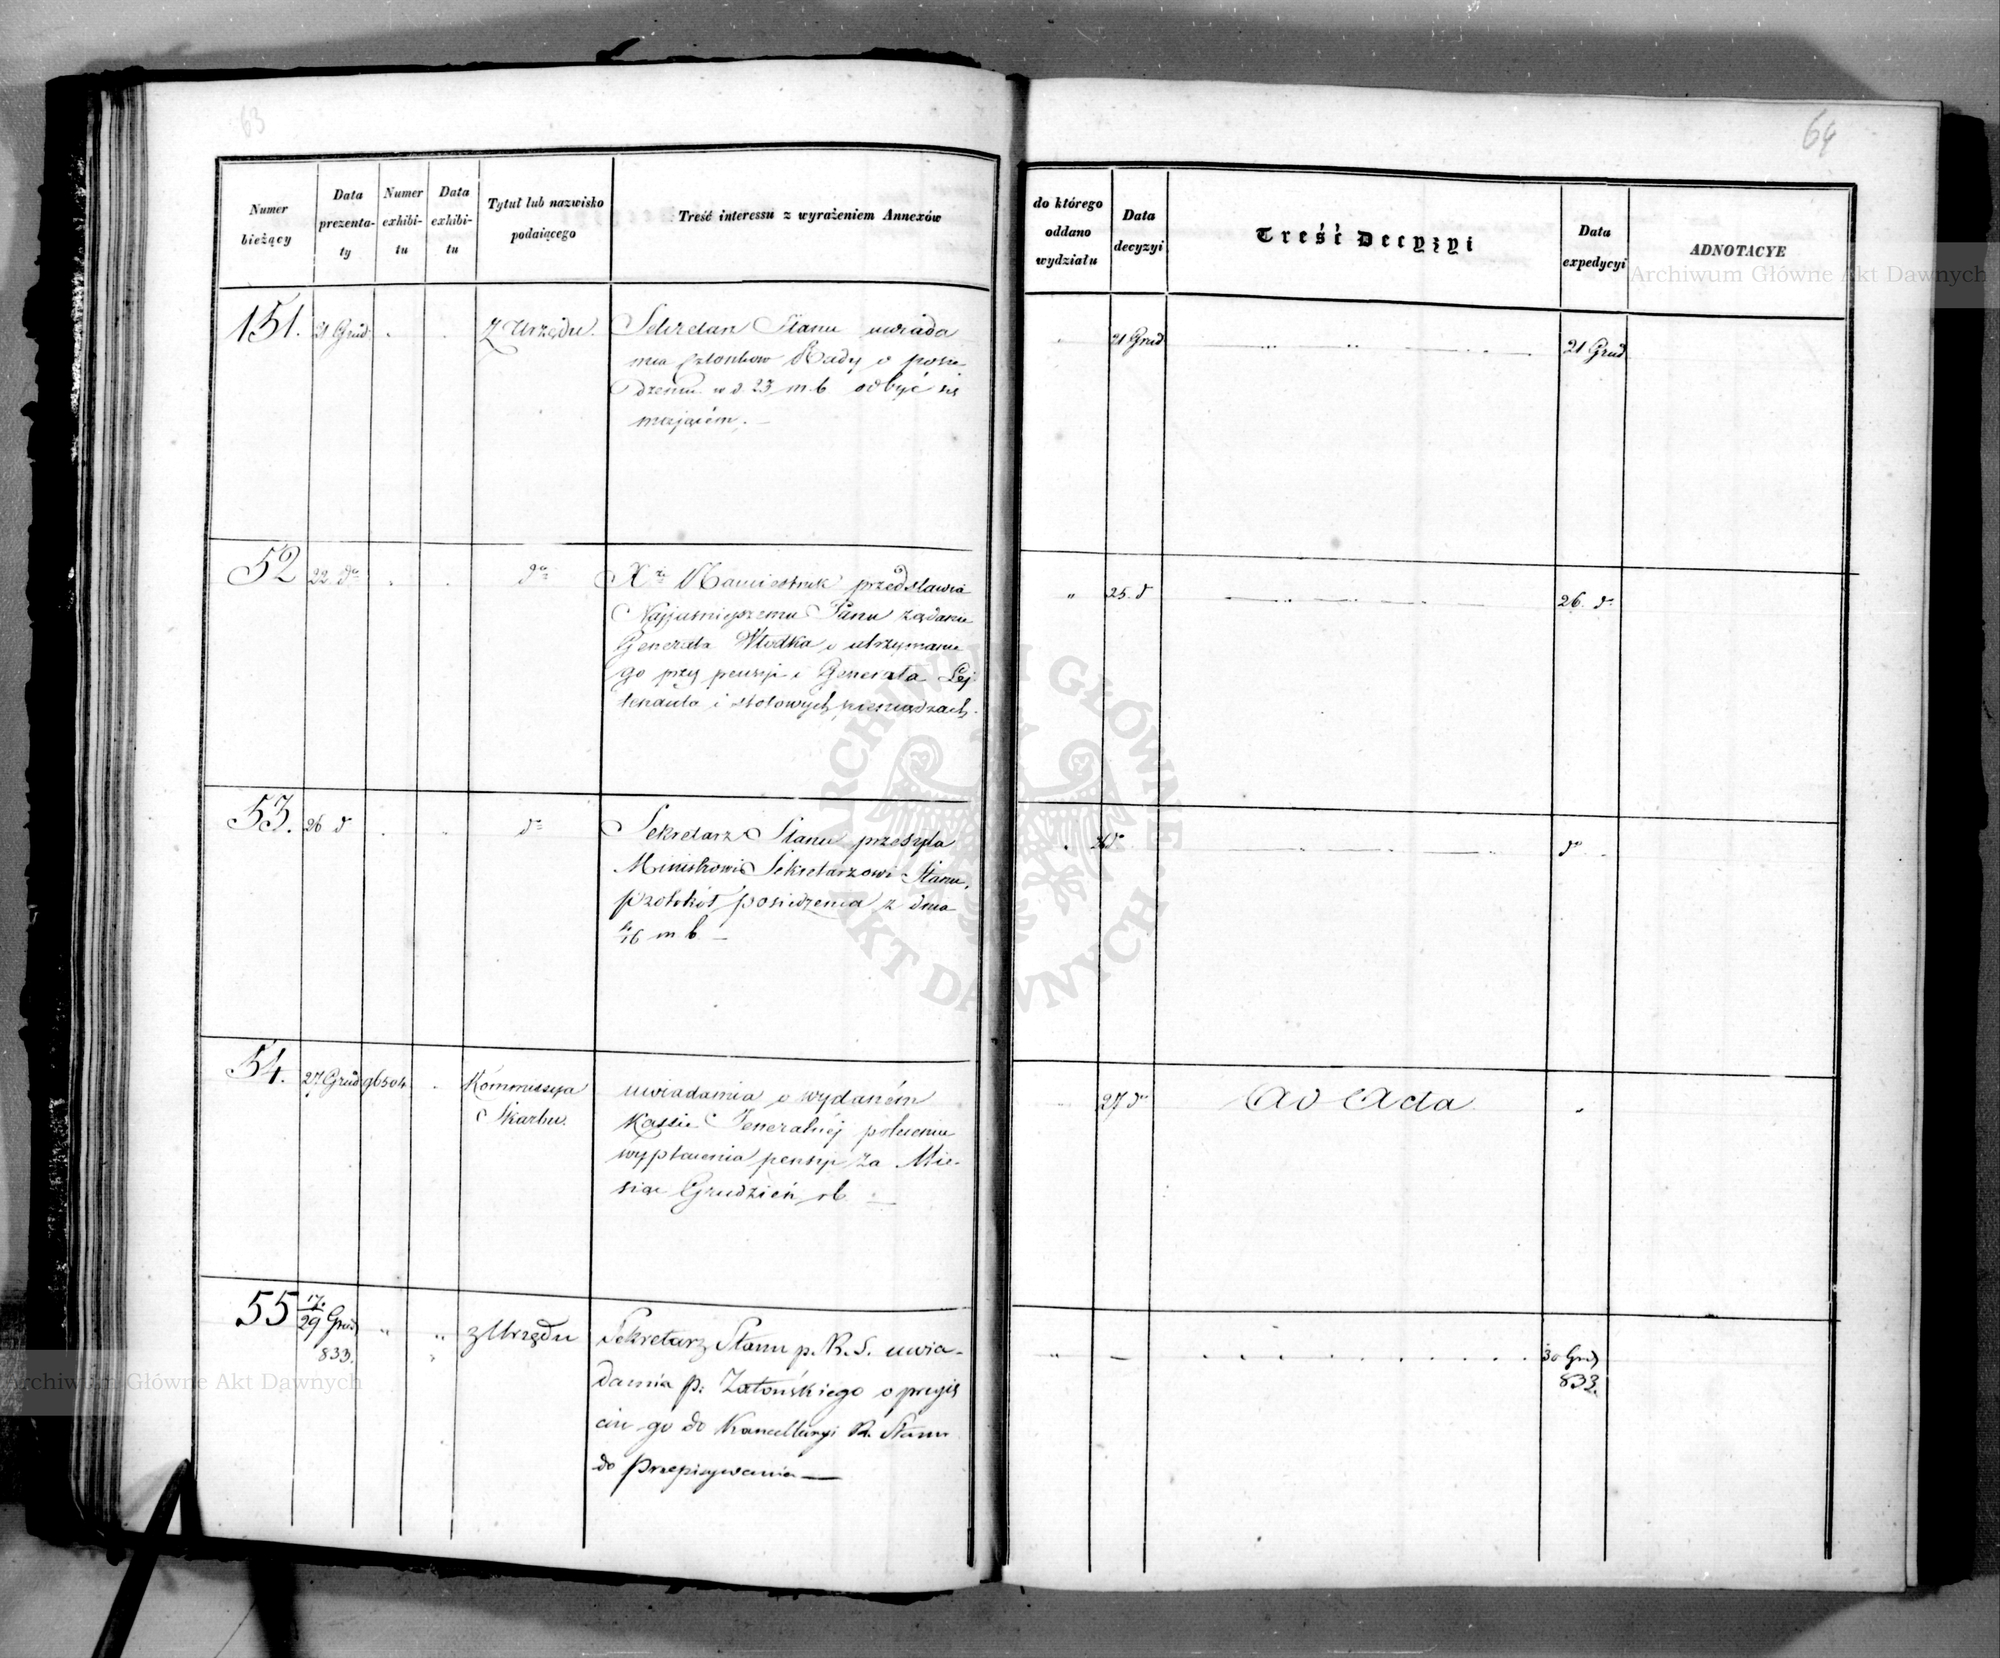 63
64
Numer bieżący
Data prezentaty
Numer exhibitu
Data exhibitu
Tytuł lub nazwisko podaiącego
Treść interessu z wyrażeniem Annexów
do którego oddano wydziału
Data decyzyi
Treść Decyzyi
Data expedycyi
ADNOTACYE
151.
21 Grud
Z Urzędu.
Sekretarz Stanu uwiada
mia Członków Rady o posie
dzeniu w d. 23 m. b. odbyć się
mającém.
21 Grud
21 Grud
52
22 do
do
Xże Namiestnik przedstawia
Najjaśniejszemu Panu żądanie
Generała Włodka o utrzymanie
go przy pensyi Generała Lej
tenanta i stołowych pieniądzach.
"
25. d
26. do
53.
26 d
do
Sekretarz Stanu przesyła
Ministrowi Sekretarzowi Stanu,
protokół posiedzenia z dnia
/16 m b. —
26 do
do
54.
27 Grud
96504
Kommissya
Skarbu.
uwiadamia o wydaném
Kassie Jeneralnéj poleceniu
wypłacenia pensyi za Mie-
siąc Grudzień rb. —
27 do
Ad Acta
"
55
17/29 Grud
833.
"
"
z Urzędu
Sekretarz Stanu p. R. S. uwia-
damia p. Zatońskiego o przyję
ciu go do Kancellaryi R. Stanu
do Przepisywania —
"
—
30 Grud
833.
Archiwum Główne Akt Dawnych
ARCHIWUM GŁÓWNE AKT DAWNYCH
Archiwum Główne Akt Dawnych